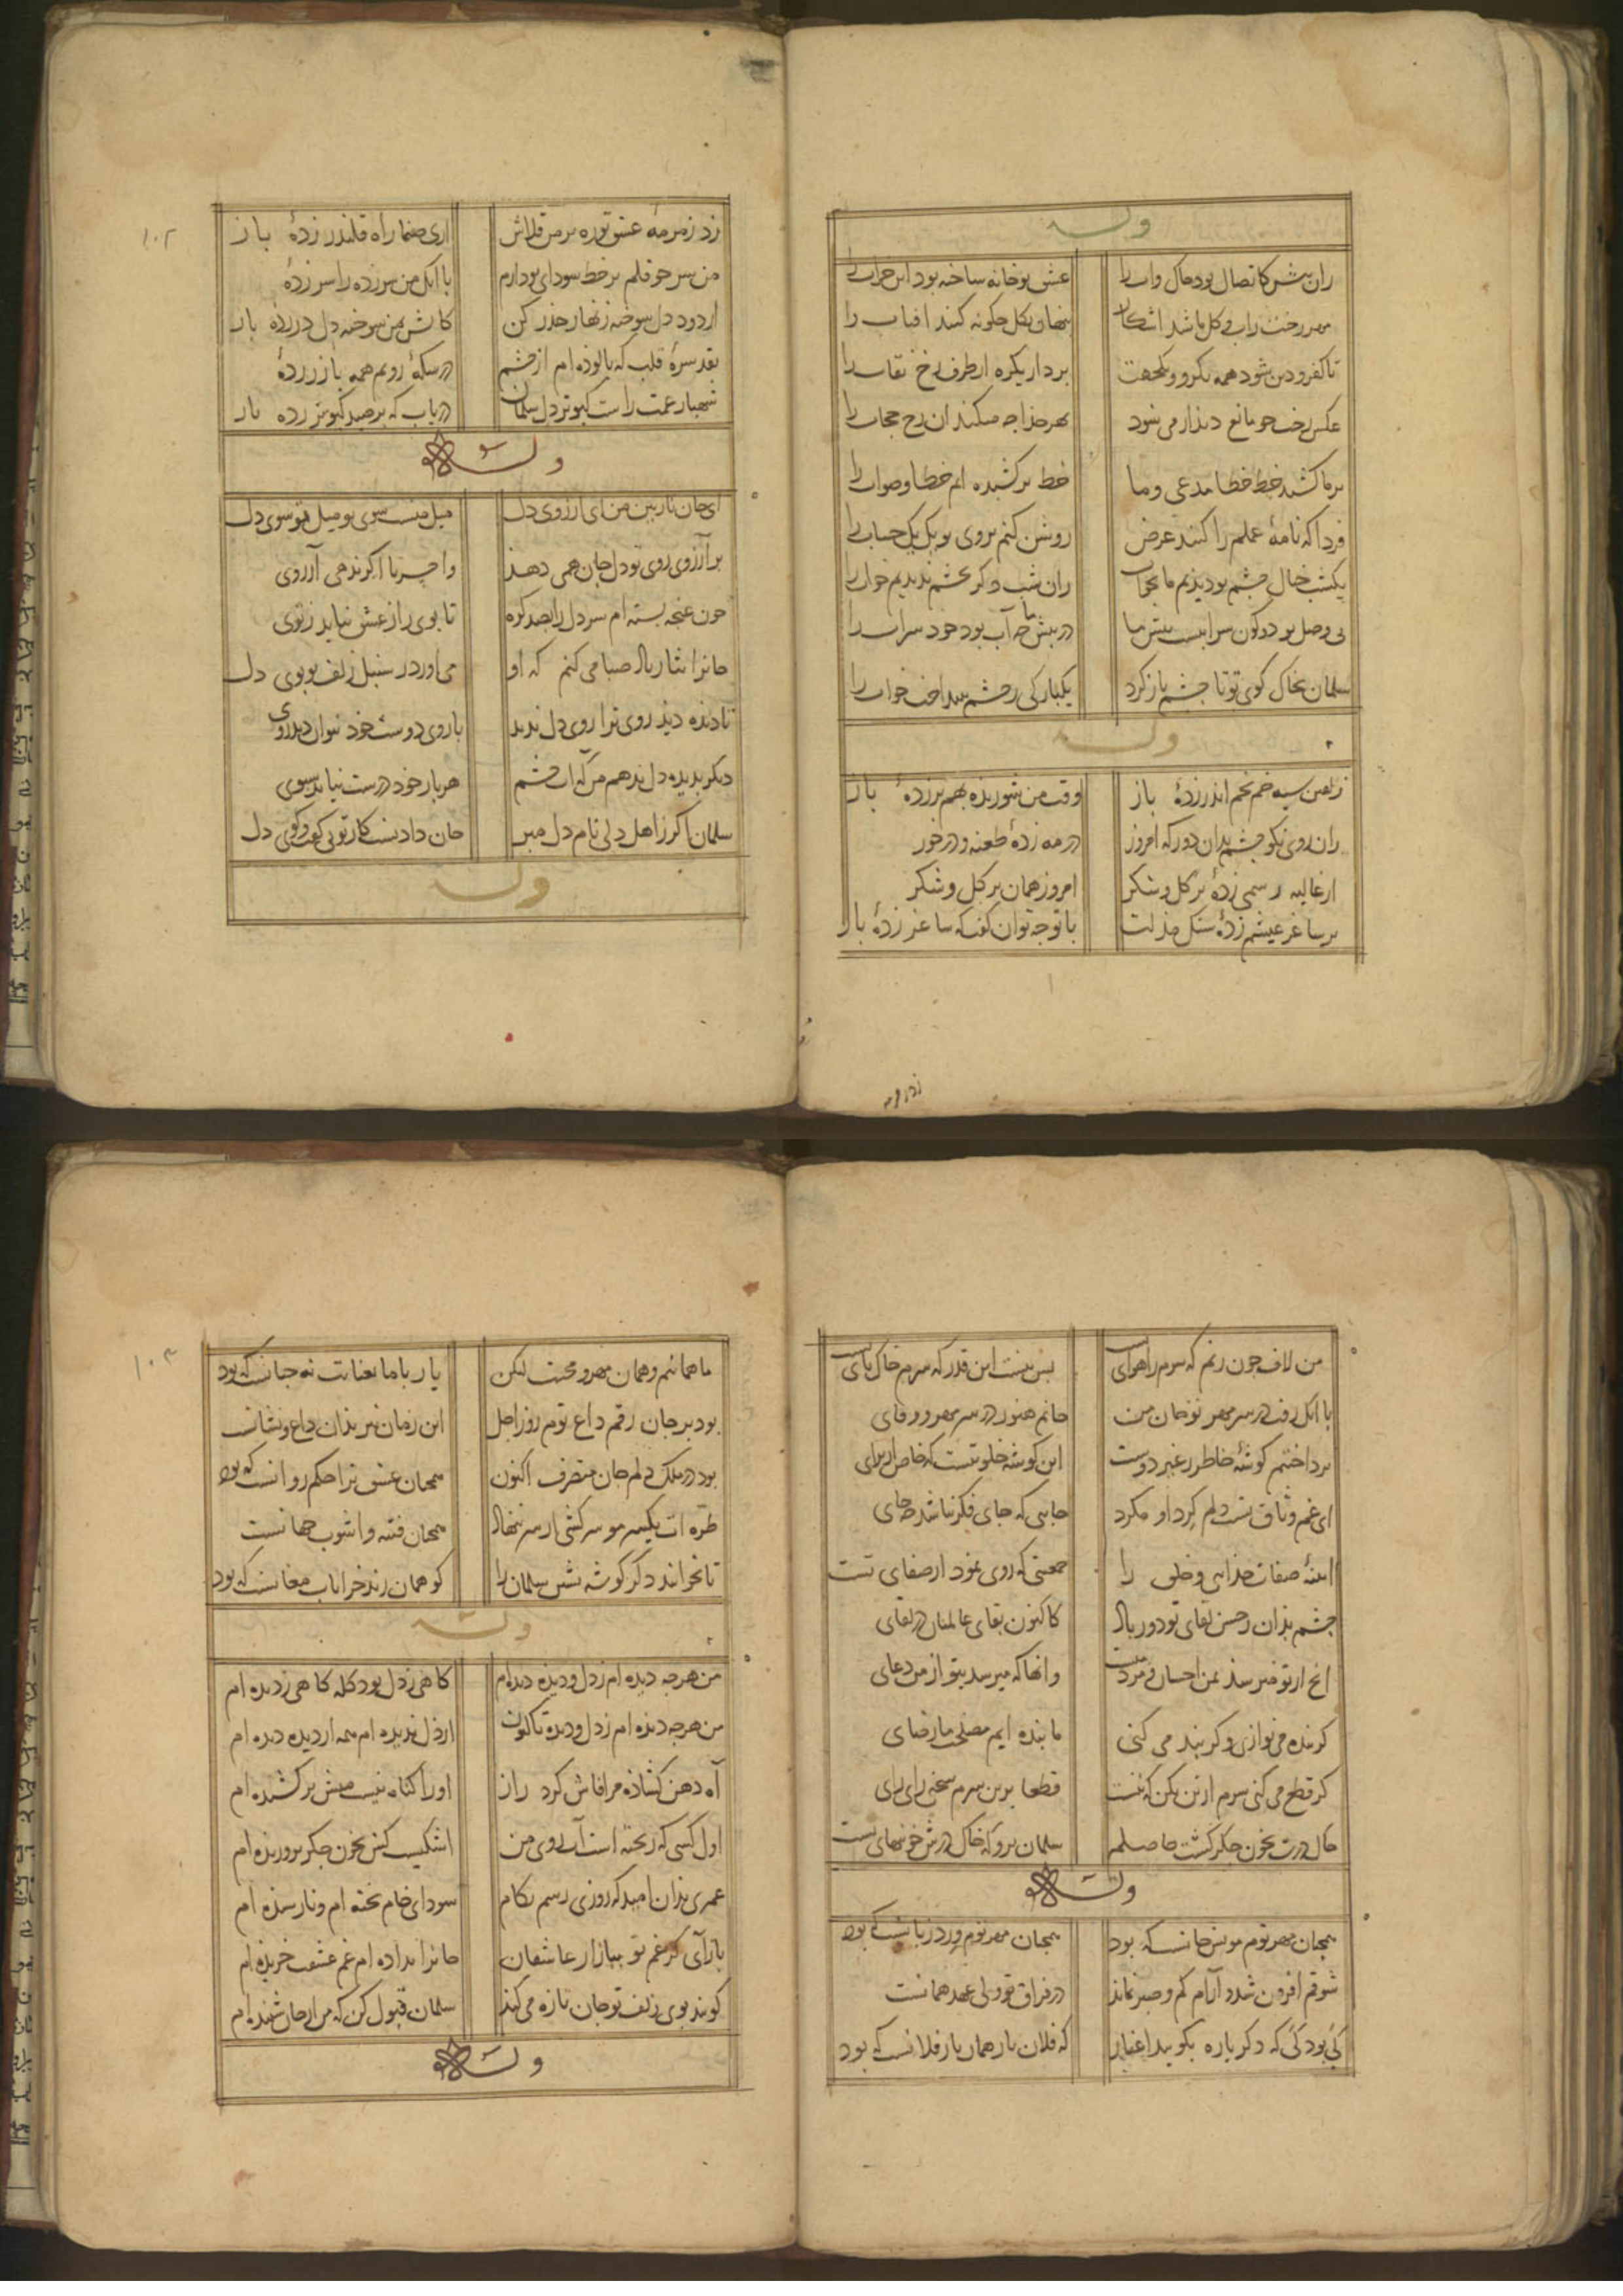 وله
زان پیش کاتصال بود خاک و آب را عشق تو خانه ساخته بود این خراب را
مهر رخت ز آب و گل ما شد آشکار پنهان بگل چگونه کنند افتاب را
تا کفر و دین شود همه یکرو و یکجهت بردار یکره از طرف رخ نقاب را
عکس رخت چو مانع دیدار می شود بهر خدا چه میکند ان رخ حجاب را
بر ما کشید خط خطا مدعی و ما خط بر کشیده ایم خطا و صواب را
فردا که نامهٔ عملم را کنند عرض روشن کنم بروی تو یک یک حساب را
یکشب خیال چشم تو دیدیم ما بخواب زان شب دگر بچشم ندیدیم خواب را
بی وصل تو دو کون سرابیست پیش ما در پیش ما چه آب بود خود سراب را
سلمان بخاک کوی تو تا چشم باز کرد یکبارگی ز چشم بینداخت خواب را
وله
زلفین سیه خم بخم اندر زدهٔ باز وقت من شوریده بهم بر زدهٔ باز
زان روی نکو چشم بدان دور که امروز در مه زدهٔ طعنه و در خور
از غالیه رسمی زدهٔ بر گل و شکر امروز همان بر گل و شکر
بر ساغر عیشم زدهٔ سنگ مذلت با تو چه توان گفت که ساغر زدهٔ باز
زد زمزمهٔ
۱۰۲
زد زمزمهٔ عشق تو ره بر من قلاش اری صنما راه قلندر زدهٔ باز
من سر چو قلم بر خط سودای تو دارم با آنک من سر زده را سر زدهٔ
از دود دل سوخته زنهار حذر کن کاتش بمن سوخته دل در زدهٔ باز
نقد سرهٔ قلب که پالوده ام از چشم در سکهٔ رویم همه بازر زدهٔ
شهباز غمت راست کبوتر دل سلمان دریاب که بر صید کبوتر زده باز
وله
ای جان نازنین من ای ارزوی دل میل منست سوی تو میل تو سوی دل
بر آرزوی روی تو دل جان همی دهد وا حسرتا اگر ندهی آرزوی
چون غنچه بسته ام سر دل را بصد گره تا بوی راز عشق نیاید ز توی
جانرا نثار باد صبا می کنم که او می آورد ز سنبل زلف تو بوی دل
تا دیده دید روی ترا روی دل ندید با روی دوست خود نتوان دید روی
دیگر بدیده دل ندهم من که اب چشم هر بار خود درست نیاید سبوی
سلمان اگر ز اهل دلی نام دل مبر جان دادنست کار تو بی گفت و گوی دل
وله
من لاف چون زنم که سرم را هوای تست بس نیست این قدر که سرم خاک پای تست
با آنک رفت در سر مهر تو جان من جانم هنوز در سر مهر و وفای
پرداختم گوشهٔ خاطر ز غیر دوست این گوشه خلوتیست که خاص از برای
ای غم وثاق تست دلم گرد او مگرد جایی که جای فکر نباشد چه جای
اینهٔ صفات خدایی و خلق را جمعیتی که روی نمود از صفای تست
چشم بدان ز حسن لقای تو دور باد کاکنون بقای عالمیان در لقای
انچ از تو میرسد بمن احسان و مردمیست وانها که میرسد بتو از من دعای
گر بنده می نوازی و گر بند می کنی ما بنده ایم مصلحت ما رضای
گر قطع می کنی سرم از تن بکن که نیست قطعا برین سرم سخنی رای رای
خاک درت بخون جگر گشت حاصلم سلمان برو که خاک درش خونبهای تست
وله
همچنان مهر توم مونس جانست که بود همچنان مهر توم ورد زبانست که بود
شوقم افزون شد و آرام کم و صبر نماند در فراق تو ولی عهد همانست
کی بود کی که دگرباره بگویند اغیار که فلان یار همان یار فلانست که بود
۱۰۳
ما همانیم و همان مهر و محبت لیکن یار با ما بعنایت نه چنانست که بود
بود بر جان رقم داغ توم روز اجل این زمان نیز بدان داغ و نشانست
بود در ملک دلم جان متصرف اکنون همچنان عشق ترا حکم روانست که بود
طره ات یکسر مو سرکشی از سر ننهاد همچنان فتنه و اشوب جهانست
تا نخوانند دگر گوشه نشین سلمان را کو همان رند خرابات مغانست که بود
وله
من هرچه دیده ام ز دل و دیده دیده ام گاهی ز دل بود گله گاهی ز دیده ام
من هرچه دیده ام ز دل و دیده تاکنون از دل ندیده ام همه از دیده دیده ام
آه دهن گشاده مرا فاش کرد راز او را گناه نیست منش برکشیده ام
اول کسی که ریخته است آب روی من اشکیست کش بخون جگر پروریده ام
عمری بدان امید که روزی رسم بکام سودای خام پخته ام و نارسیده ام
بازآی کز غم تو ببازار عاشقان جانرا بداده ام غم عشقت خریده ام
گویند بوی زلف تو جان تازه می کند سلمان قبول کن که من از جان شنیده ام
وله